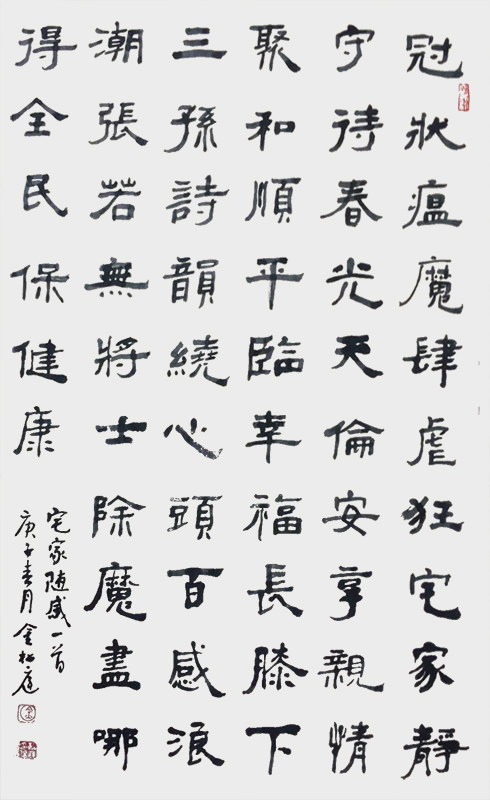 冠狀瘟魔肆虐狂宅家靜
守待春光天倫安享親情
聚和順平臨幸福長膝下
三孫詩韻繞心頭百感浪
潮張若無將士除魔盡哪
得全民保健康
宅家随感一首
庚子春月金